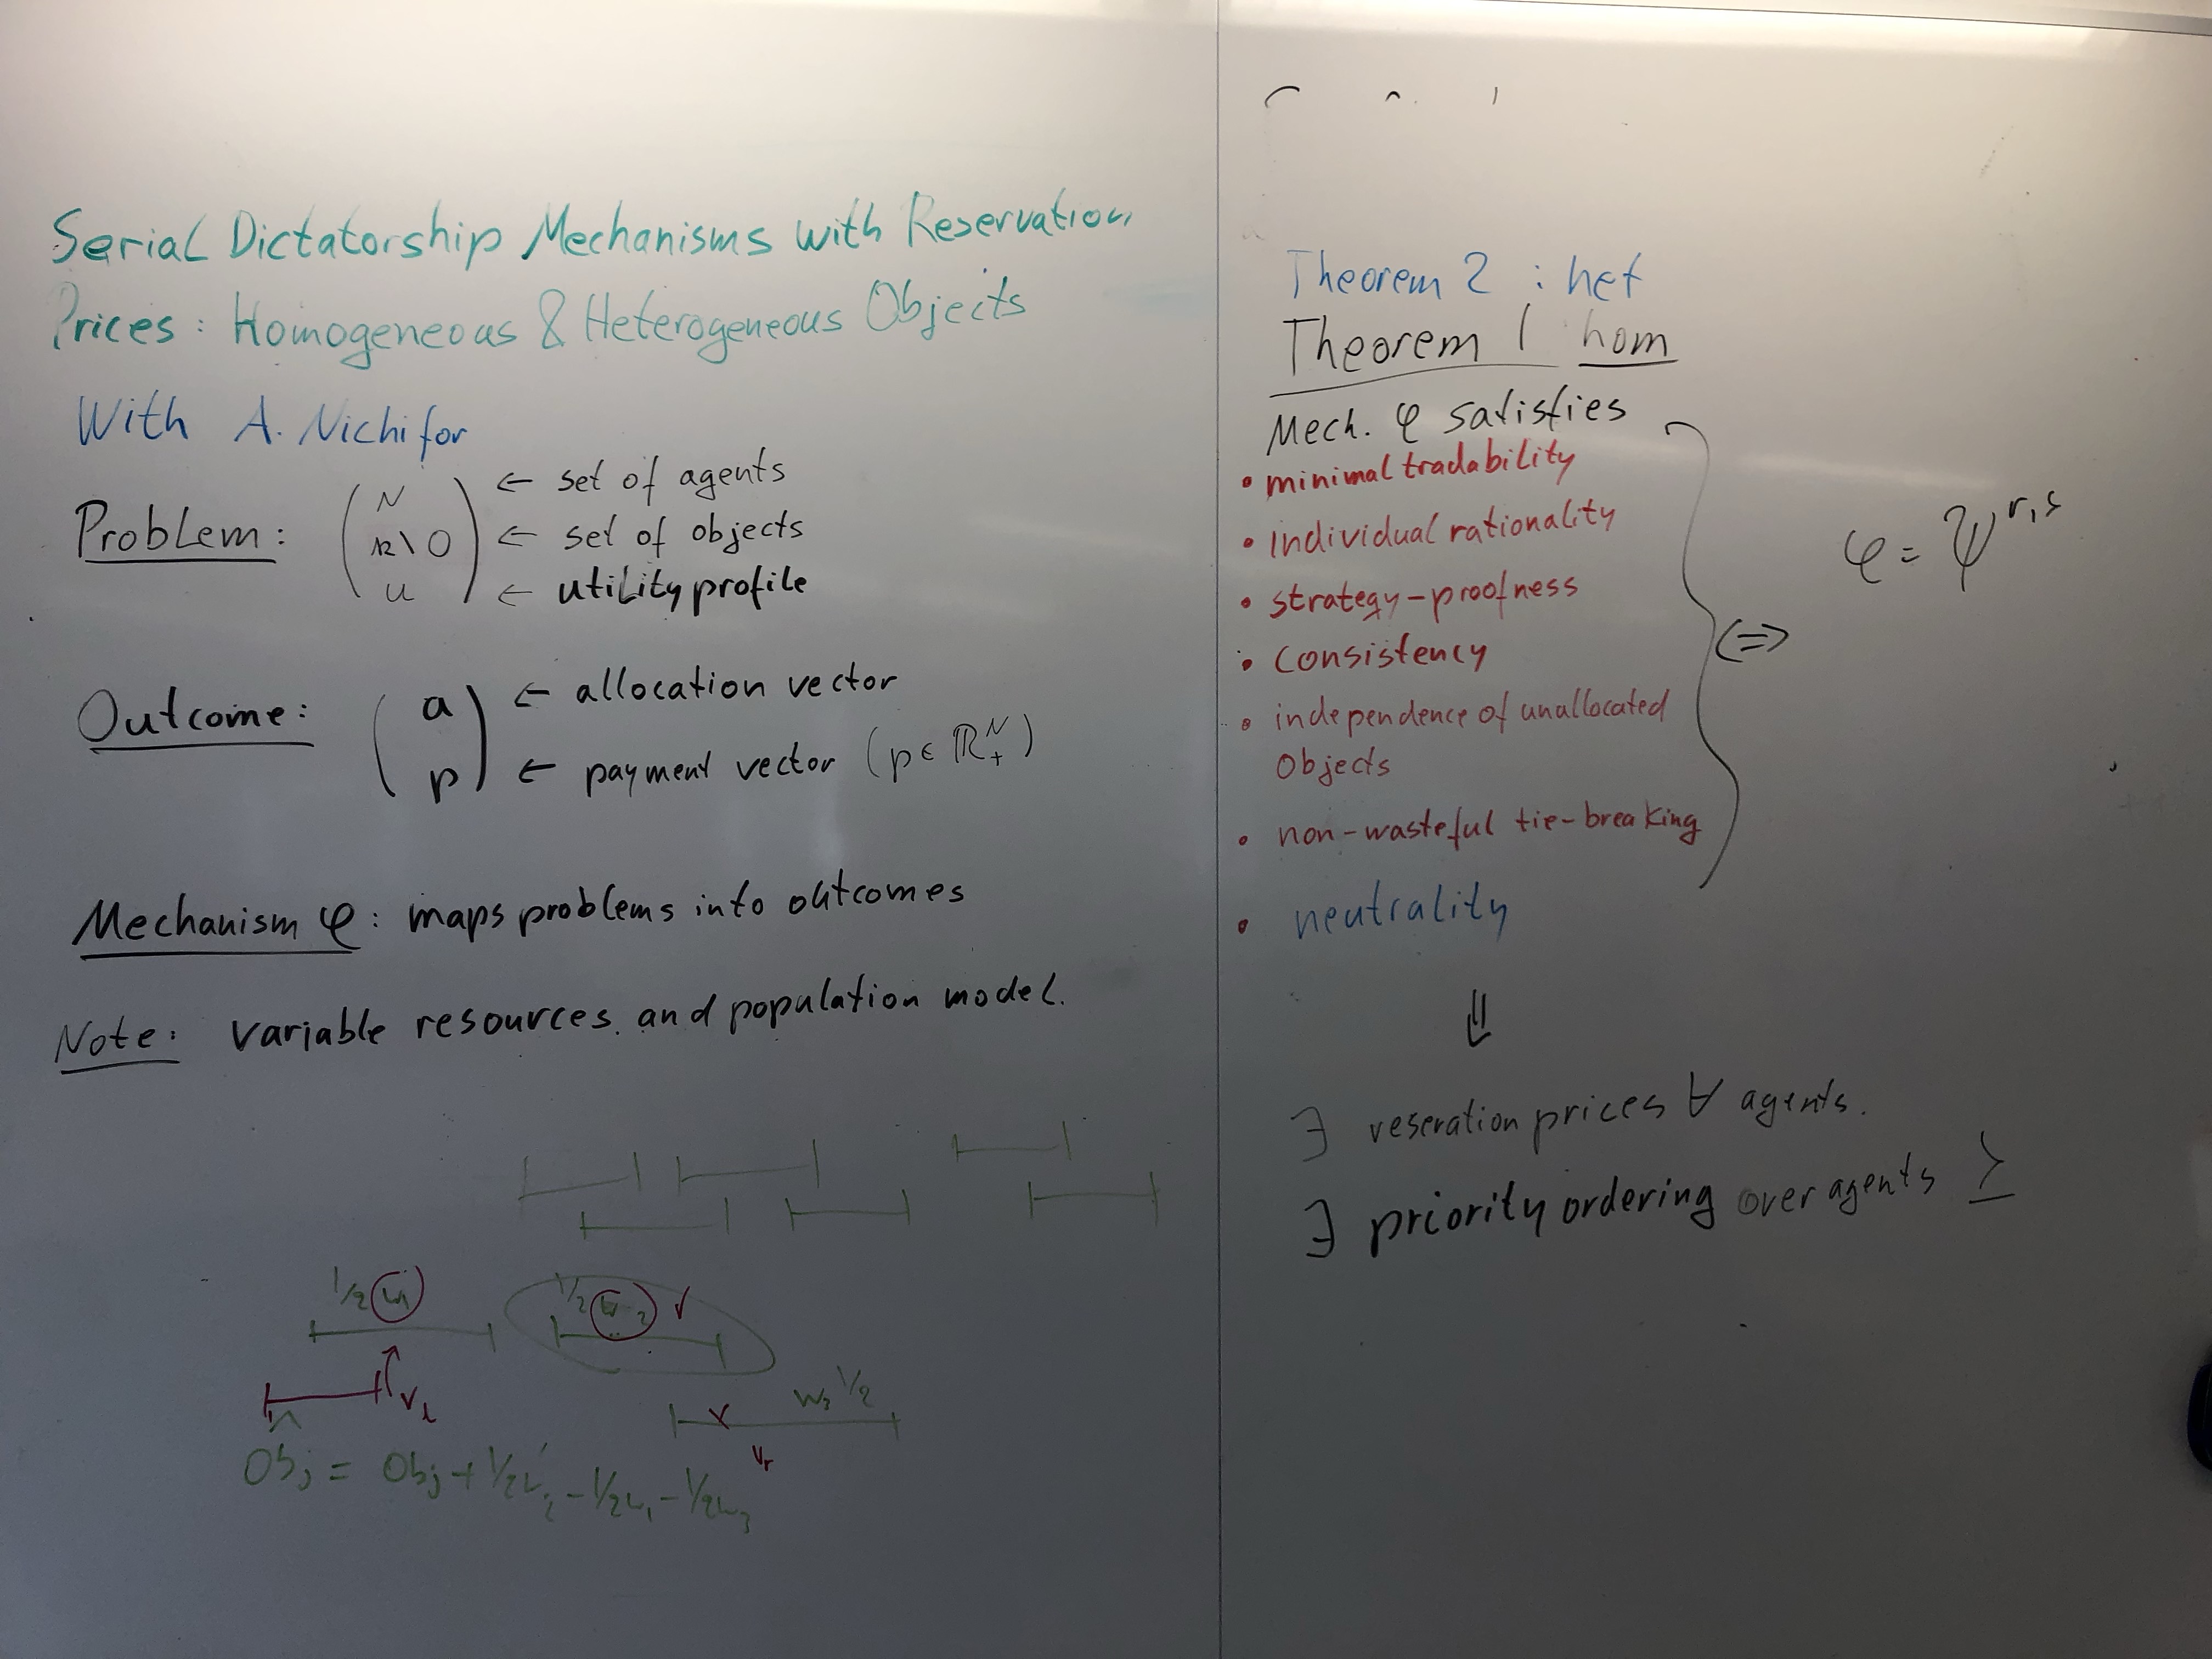 Serial Dictatorship Mechanisms with Reservation
Prices: Homogeneous & Heterogeneous Objects
With A. Nichifor
Problem: N ← set of agents
\ O ← set of objects
u ← utility profile
Outcome: a ← allocation vector
p ← payment vector (p ∈ ℝ₊ᴺ)
Mechanism φ: maps problems into outcomes
Note: variable resources and population model.
1/2 w₁
1/2 w₂ ✓
w₃ 1/2
v_l
v_r
Obj = Obj + 1/2 w₂ - 1/2 w₁ - 1/2 w₃
Theorem 2 : het
Theorem 1 hom
Mech. φ satisfies
• minimal tradability
• individual rationality
• strategy-proofness
• consistency
• independence of unallocated
objects
• non-wasteful tie-breaking
• neutrality
⇔ φ = ψ
⇓
∃ reseration prices ∀ agents.
∃ priority ordering over agents ≥